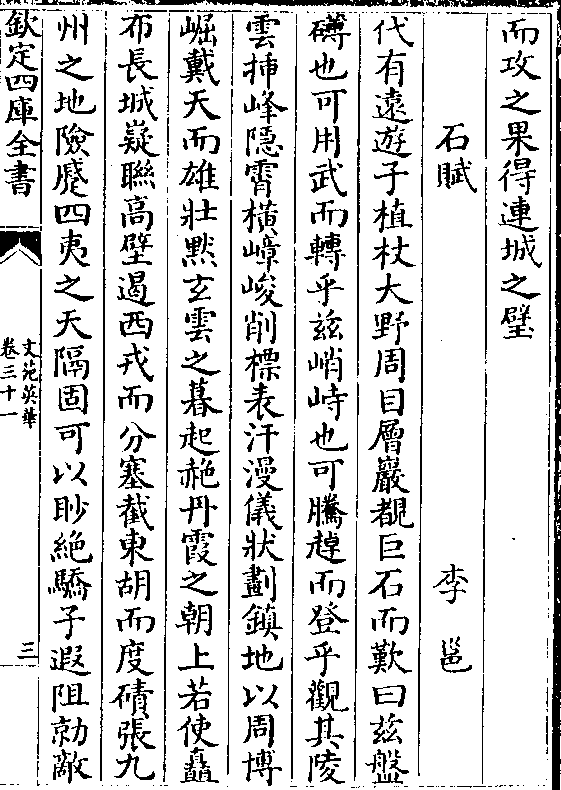 而攻之果得連城之璧
石賦 李邕
代有遠遊子植杖大野周目層巖覩巨石而歎曰兹盤
礡也可用武而轉乎兹峭峙也可騰趠而登乎觀其陵
雲揷峰隠霄横嶂峻削標表汗漫儀狀劃鎮地以周博
崛戴天而雄壯黙玄雲之暮起赩丹霞之朝上若使矗
布長城嶷聯高壁遏西戎而分塞截東胡而度磧張九
州之地險蹙四夷之天隔固可以眇絶驕子遐阻勍敵
欽定四庫全書
文苑英華
卷三十一
三